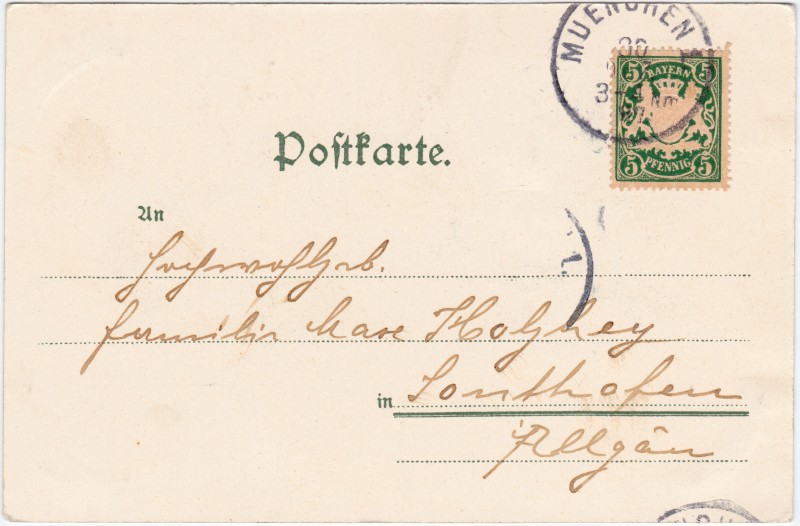 MUENCHEN
30
3-4 Nm
5 BAYERN 5
5 PFENNIG 5
Poſtkarte.
An
Hochwohlgeb.
Familie Max Holzhey
in Sonthofen
Allgäu